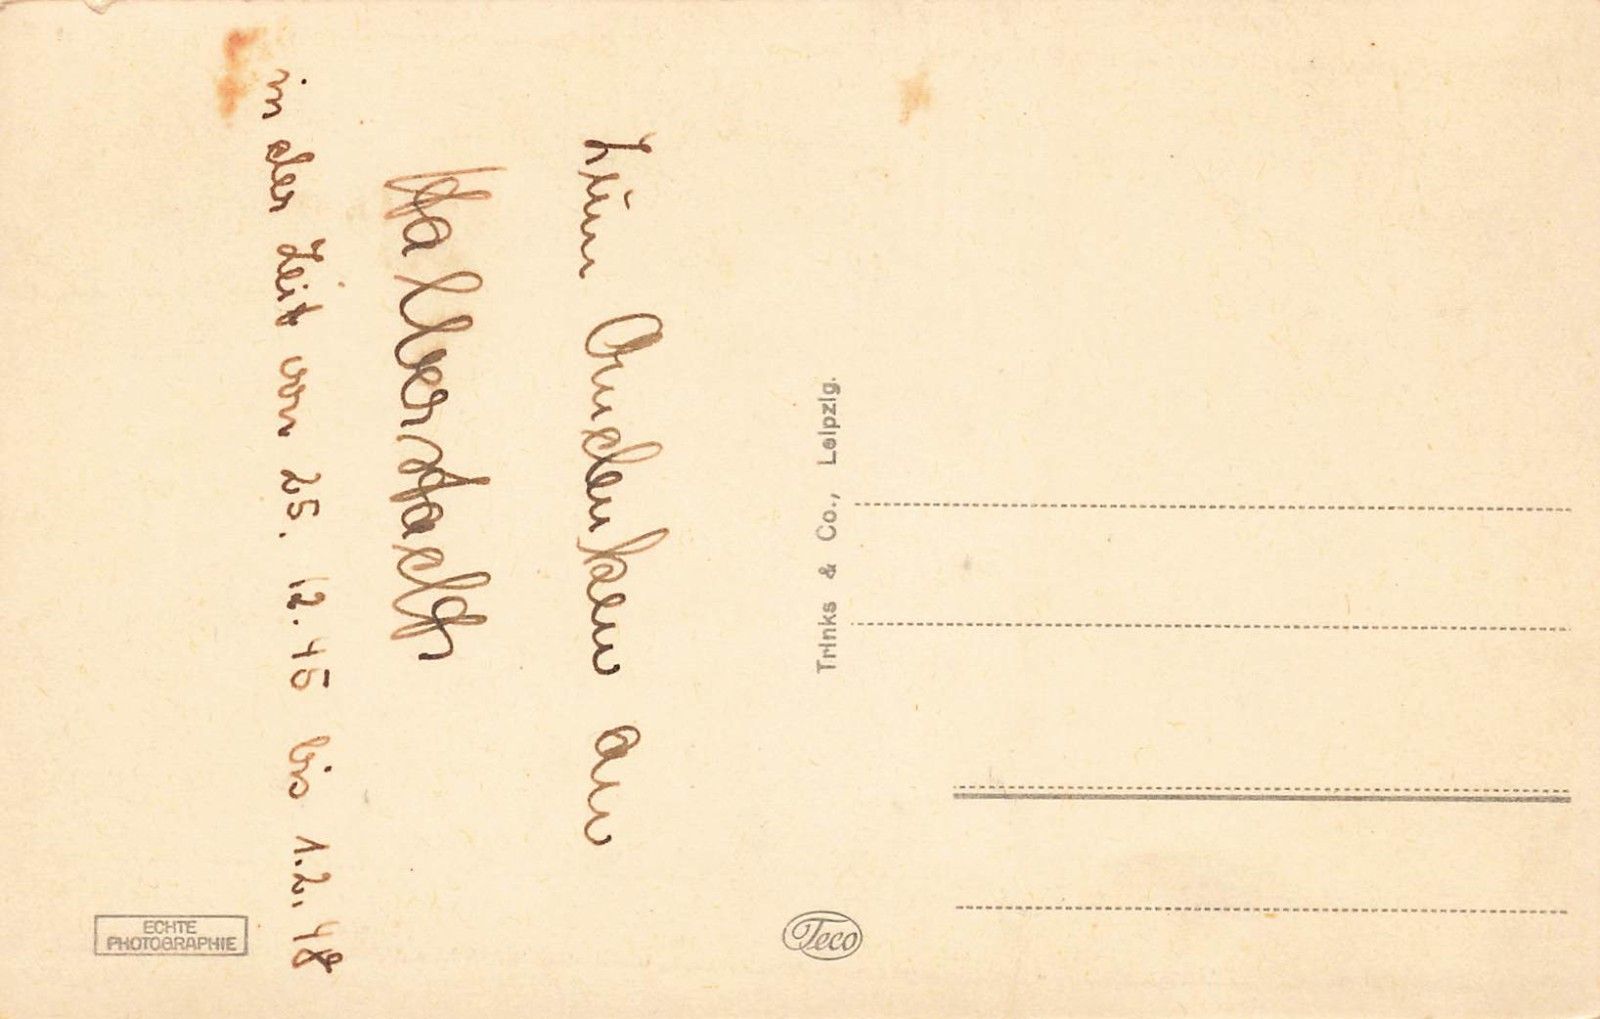 Zum Andenken an
Halberstadt
in der Zeit von 25. 12. 45 bis 1. 2. 48
Trinks & Co., Leipzig.
ECHTE
PHOTOGRAPHIE
Teco